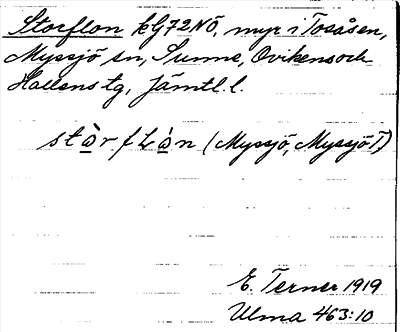 Storflon kG72NÖ, myr i Tosåsen,
Myssjö sn, Sunne, Ovikens och
Hallens tg, Jämtl. l.
stòrflòn (Myssjö, Myssjö T)
E. Terner 1919
Ulma 463:10